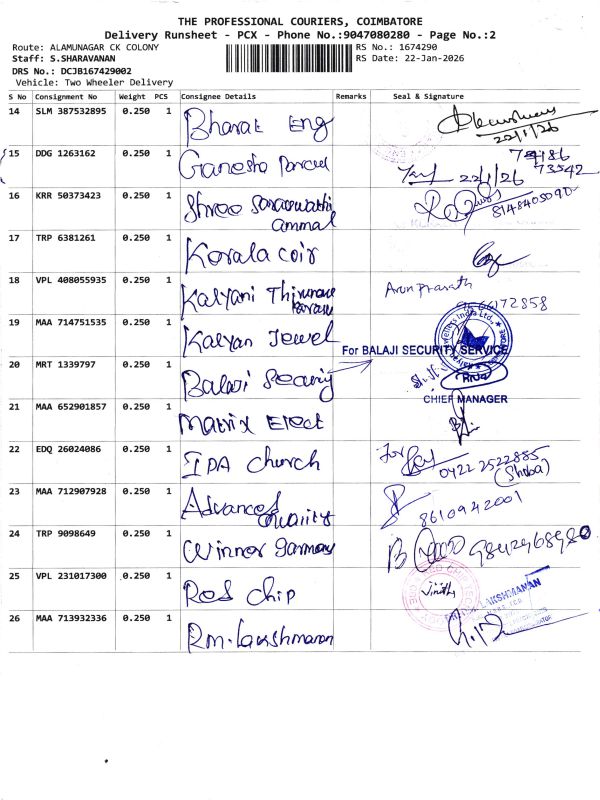 THE PROFESSIONAL COURIERS, COIMBATORE
Delivery Runsheet - PCX - Phone No.:9047080280 - Page No.:2
Route: ALAMUNAGAR CK COLONY
Staff: S.SHARAVANAN
DRS No.: DCJB167429002
Vehicle: Two Wheeler Delivery
RS No.: 1674290
RS Date: 22-Jan-2026
S No Consignment No Weight PCS Consignee Details Remarks Seal & Signature
14 SLM 387532895 0.250 1 Bharat Eng
22/1/26
15 DDG 1263162 0.250 1 Ganesha Parcel
22/1/26 73542
16 KRR 50373423 0.250 1 Shree Saraswathi
ammal
8148405090
17 TRP 6381261 0.250 1 Kerala coir
18 VPL 408055935 0.250 1 Kalyani Arun Prasath
19 MAA 714751535 0.250 1 Kalyan Jewel
For BALAJI SECURITY SERVICE
20 MRT 1339797 0.250 1 Balaji Security
CHIEF MANAGER
21 MAA 652901857 0.250 1 Matrix Elect
22 EDQ 26024086 0.250 1 IPA church For
0422 2522885
(Shoba)
23 MAA 712907928 0.250 1 Advanced
Quality
8610942001
24 TRP 9098649 0.250 1 Winner Garmen
25 VPL 231017300 0.250 1 Ros chip
LAKSHMANAN
26 MAA 713932336 0.250 1 Rm. Lakshmanan